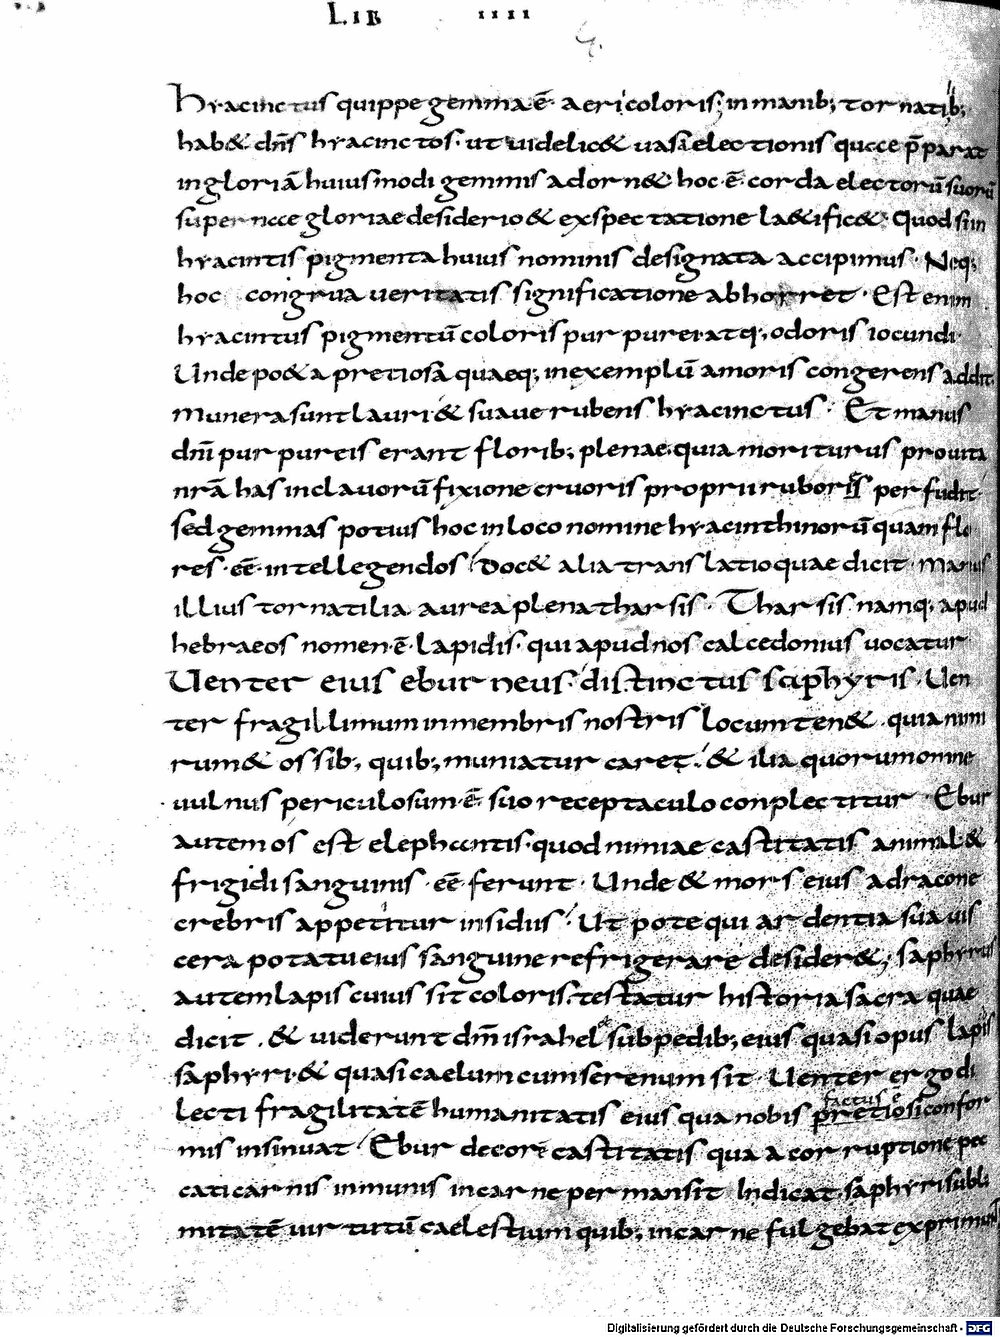 LIB IIII
hyacinctus quippe gemma ē aeri coloris; in manib; tornatib;
hab& dn̄s hyacinctos· ut uidelic& uasa electionis quae p̄parat
in gloriā huiusmodi gemmis adorn& hoc·ē·corda electorū suorū
supernae gloriae desiderio & exspectatione la&ific&· Quod si in
hyacintis pigmenta huius nominis designata accipimus· Neq;
hoc congrua ueritatis significatione abhorret· Est enim
hyacintus pigmentū coloris purpurei· atq; odoris iocundi·
Unde po&a pretiosa quaeq; in exemplū amoris congerens addit
munera sunt lauri & suaue rubens hyacinctus· Et manus
dn̄i purpureis erant florib; plenae· quia moriturus pro uita
nrā has in clauorū fixione cruoris proprii ruboris perfudit·
sed gemmas potius hoc in loco nomine hyacinthinorū quam flo
res·eē·intellegendos doc& alia translatio quae dicit· Manus
illius tornatilia aurea plena tharsis· Tharsis namq; apud
hebraeos nomen·ē·lapidis· qui apud nos calcedonius uocatur
Uenter eius eburneus· distinctus saphyris· Uen
ter fragillimum in membris nostris locum ten&· quia nimi
rum & ossib; quib; muniatur caret· & ilia quorum omne
uulnus periculosum·ē· suo receptaculo conplectitur· Ebur
autem os est elephantis· quod nimiae castitatis animal·&
frigidi sanguinis·eē·ferunt· Unde & mors eius a dracone
crebris appetitur insidiis· Ut pote qui ardentia sua uis
cera potatu eius sanguine refrigerare desider&; saphyrus
autem lapis cuius sit coloris· testatur historia sacra quae
dicit· & uiderunt dm̄ israhel sub pedib; eius quasi opus lapis
saphyri· & quasi caelum cum serenum sit· Uenter ergo di
lecti fragilitatē humanitatis eius qua nobis pretiosi factus ē confor
mis insinuat· Ebur decorē castitatis qua a corruptione pec
cati carnis inmunis in carne permansit Indicat· saphyri subli
mitatē uirtutū caelestium quib; in carne fulgebat exprimunt
Digitalisierung gefördert durch die Deutsche Forschungsgemeinschaft - DFG